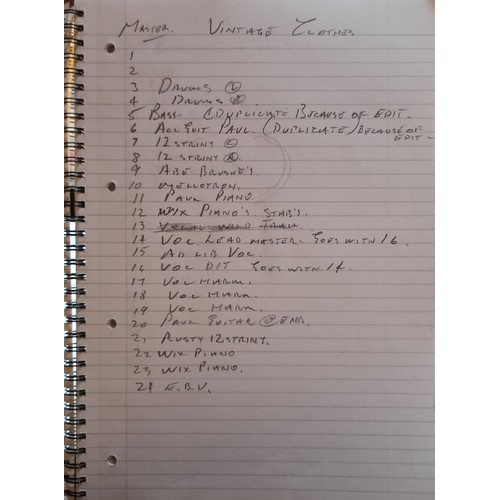 Master. Vintage Clothes
1
2
3 Drums Ⓛ
4 Drums Ⓡ
5 Bass (Duplicate Because of Edit-
6 Acc Guit Paul. (Duplicate) Because of
Edit-
7 12 String Ⓛ
8 12 String Ⓡ
9 Abe Brushe's
10 Mellotron.
11 Paul Piano.
12 Wix Piano's. Stab's.
13 Vocal Wild Track
14 Voc Lead Master. Goes with 16.
15 Ad Lib Voc.
16 Voc DIT Goes with 14.
17 Voc Harm.
18 Voc Harm.
19 Voc Harm.
20 Paul Guitar @ End.
21 Rusty 12 String.
22 Wix Piano
23 Wix Piano.
24 E.B.V.